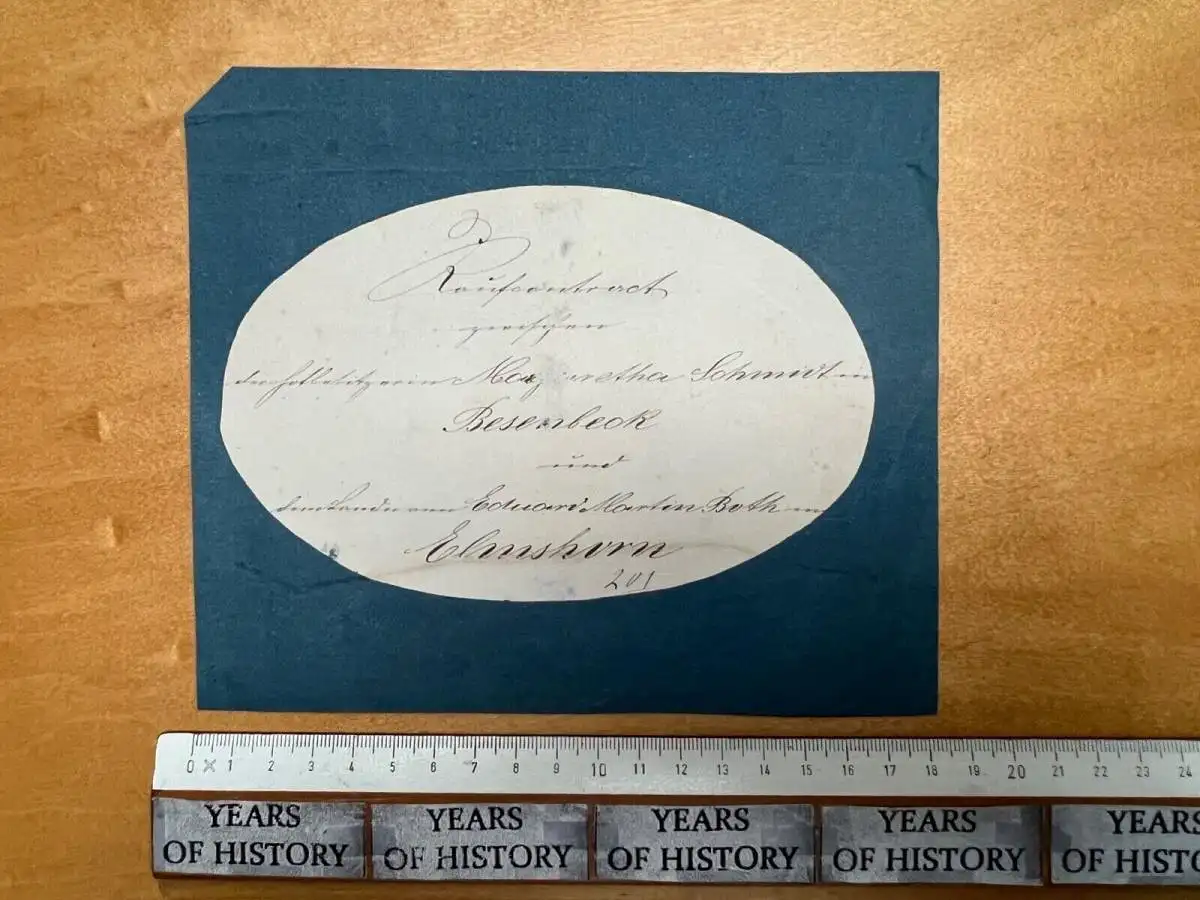 Kaufcontract
zwischen
der Hofbesitzerin Margaretha Schmidt in
Besenbeck
und
dem Eduard Martin Both in
Elmshorn
201
0 1 2 3 4 5 6 7 8 9 10 11 12 13 14 15 16 17 18 19 20 21 22 23 24
YEARS YEARS YEARS YEARS YEARS
OF HISTORY OF HISTORY OF HISTORY OF HISTORY OF HISTO